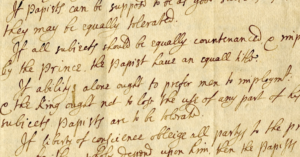 If Papists can be supposd to be as good
they may be equally tolerated.
If all subjects should be equally countenancd & imployd
by the Prince. the Papist have an equall title.
If abilitys alone ought to prefer men to imployment
& the King ought not to loss the use of any part of his
subjects Papists are to be tolerated
If liberty of conscience obleige all partys to the
depend upon him, then the Papists